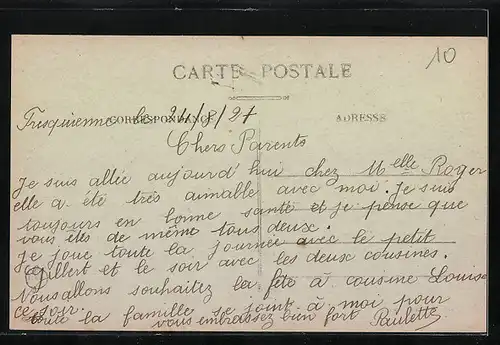 10
CARTE POSTALE
CORRESPONDANCE
ADRESSE
Fresquienne le 24/8/27
Chers Parents
Je suis allée aujourd'hui chez Melle Roger
elle a été très aimable avec moi. Je suis
toujours en bonne santé et je pense que
vous êtes de même tous deux.
je joue toute la journée avec le petit
Gilbert et le soir avec les deux cousines.
Nous allons souhaitez la fête à cousine Louise
ce soir.
toute la famille se joint à moi pour
vous embrassez bien fort Paulette